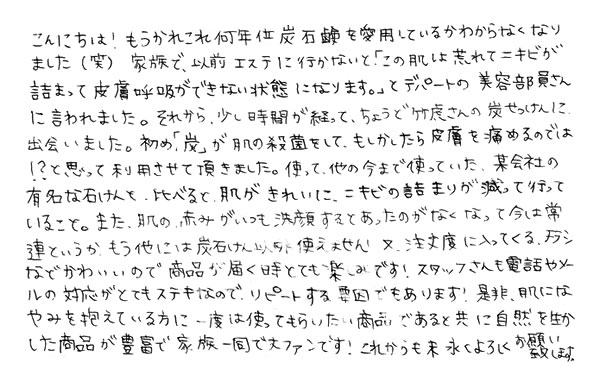 こんにちは！もうかれこれ何年位炭石鹸を愛用しているかわからなくなり
ました（笑）家族で、以前エステに行かないと「この肌は荒れてニキビが
詰まって皮膚呼吸ができない状態になります。」とデパートの美容部員さん
に言われました。それから、少し時間が経って、ちょうど竹虎さんの炭せっけんに
出会いました。初め、「炭」が肌の殺菌をして、もしかしたら皮膚を痛めるのでは
!?と思って利用させて頂きました。使って、他の今まで使っていた、某会社の
有名な石けんと、比べると、肌がきれいに、ニキビの詰まりが減って行って
いること。また、肌の赤みがいつも洗顔するとあったのがなくなって今は常
連というか、もう他には炭石けん以外使えません 又、注文度に入ってくる、チラシ
なでかわいいので商品が届く時とても楽しみです！スタッフさんも電話やメー
ルの対応がとてもステキなので、リピートする要因でもあります！是非、肌にな
やみを抱えている方に一度は使ってもらいたい商品であると共に自然を生か
した商品が豊富で家族一同で大ファンです！これからも末永くよろしくお願い
致します。